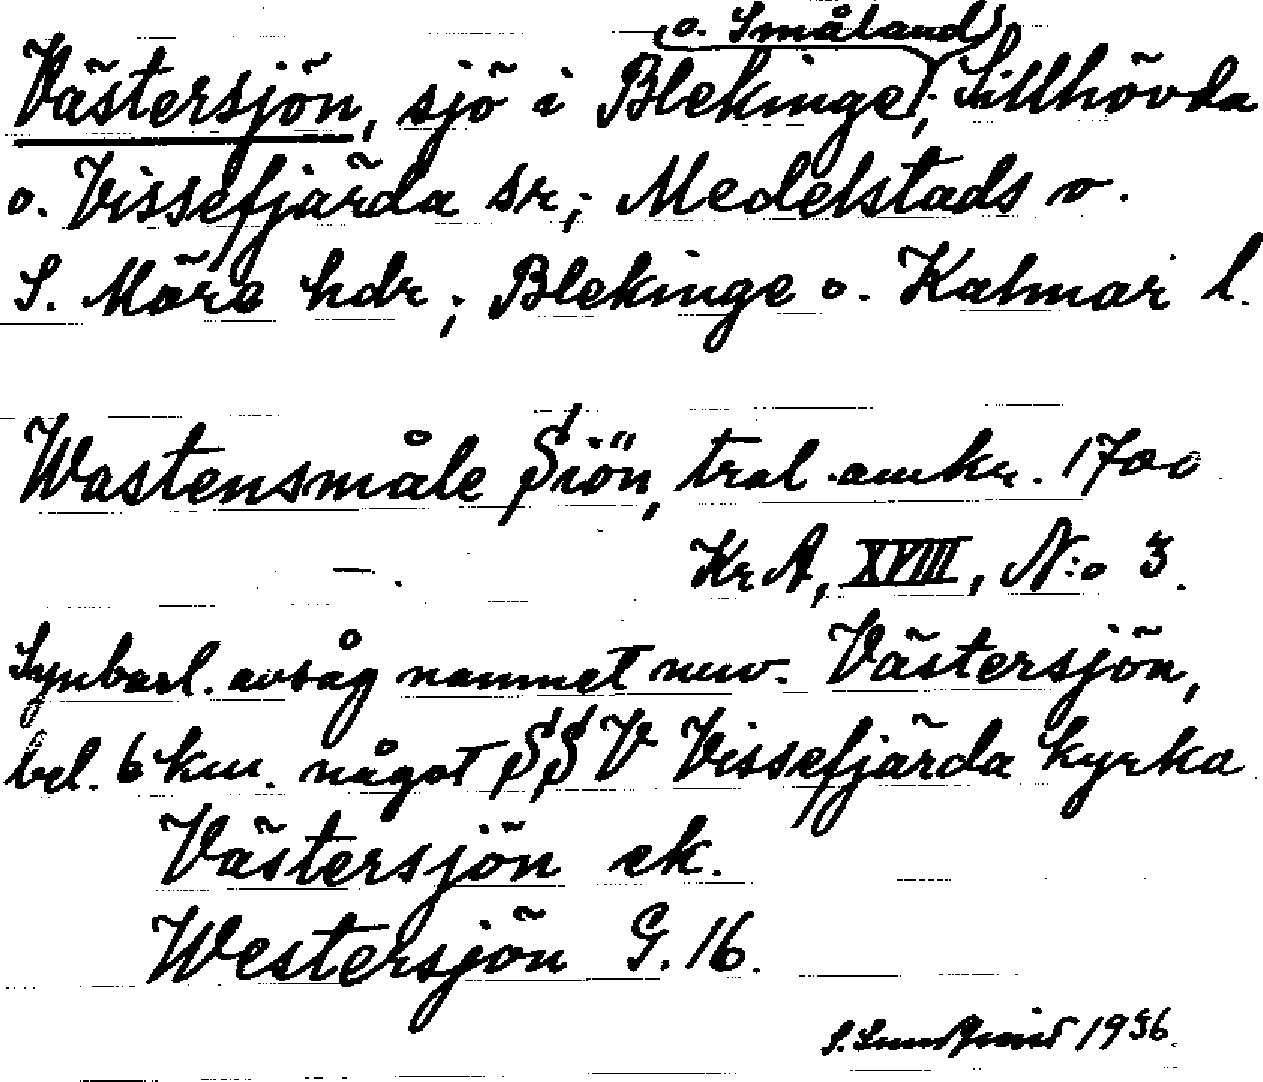 (o. Småland)
Västersjön, sjö i Blekinge, Sillhövda
o. Vissefjärda sr, Medelstads o.
S. Möre hdr, Blekinge o. Kalmar l.
Wastensmåle Siön, tral. omkr. 1700
KrA, XVIII, N:o 3.
Synbarl. avsåg namnet nuv. Västersjön,
bel. 6 km. något SSV Vissefjärda kyrka
Västersjön ek.
Westersjön G. 16.
S. Lundqvist 1936.